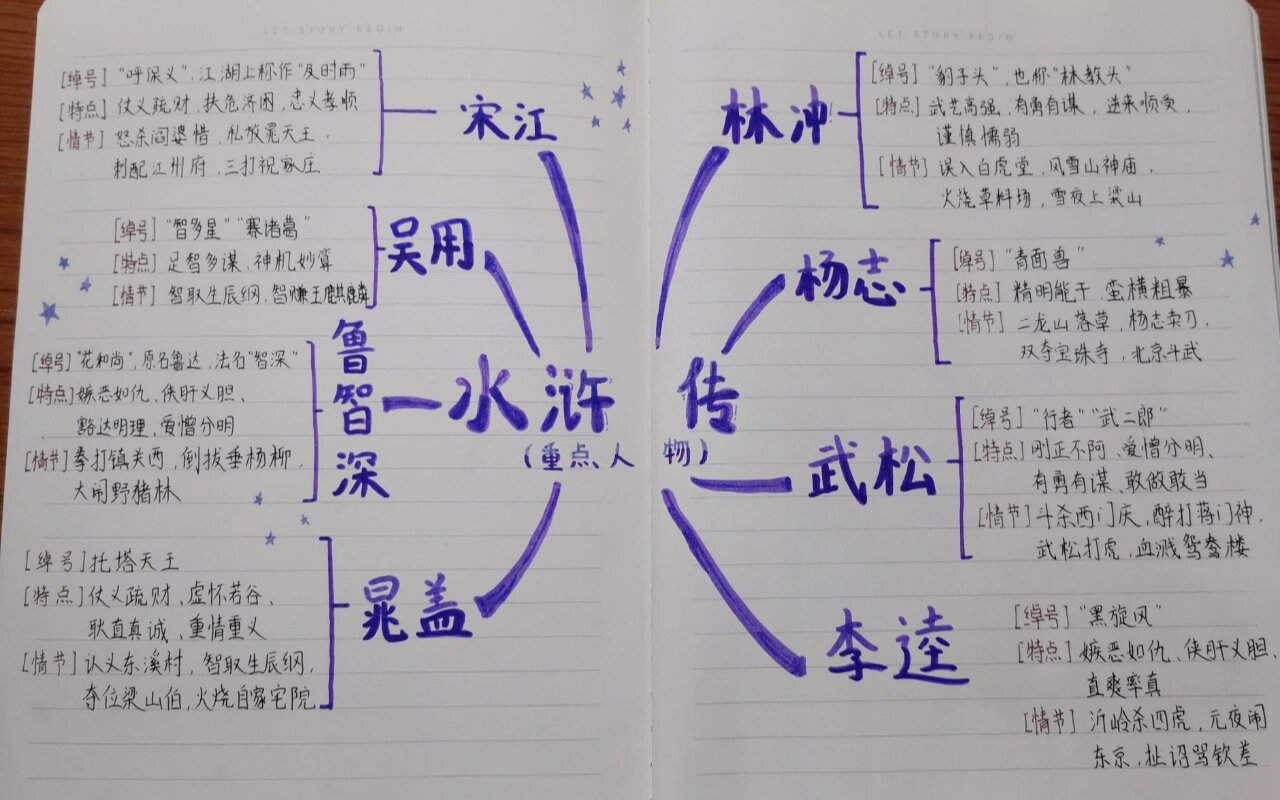 LET STORY BEGIN
LET STORY BEGIN
水浒传
(重点人物)
宋江
[绰号]“呼保义”,江湖上称作“及时雨”
[特点]仗义疏财、扶危济困、忠义孝顺
[情节]怒杀阎婆惜、私放晁天王、
刺配江州府、三打祝家庄
吴用
[绰号]“智多星”“赛诸葛”
[特点]足智多谋、神机妙算
[情节]智取生辰纲、智赚玉麒麟
鲁智深
[绰号]“花和尚”,原名鲁达,法名“智深”
[特点]嫉恶如仇、侠肝义胆、
豁达明理、爱憎分明
[情节]拳打镇关西、倒拔垂杨柳、
大闹野猪林
晁盖
[绰号]托塔天王
[特点]仗义疏财、虚怀若谷、
耿直真诚、重情重义
[情节]认义东溪村,智取生辰纲,
夺位梁山伯,火烧自家宅院
林冲
[绰号]“豹子头”,也称“林教头”
[特点]武艺高强、有勇有谋、逆来顺受、
谨慎懦弱
[情节]误入白虎堂、风雪山神庙、
火烧草料场、雪夜上梁山
杨志
[绰号]“青面兽”
[特点]精明能干、蛮横粗暴
[情节]二龙山落草、杨志卖刀、
双夺宝珠寺、北京斗武
武松
[绰号]“行者”“武二郎”
[特点]刚正不阿、爱憎分明、
有勇有谋、敢做敢当
[情节]斗杀西门庆,醉打蒋门神,
武松打虎,血溅鸳鸯楼
李逵
[绰号]“黑旋风”
[特点]嫉恶如仇、侠肝义胆、
直爽率真
[情节]沂岭杀四虎,元夜闹
东京,扯诏骂钦差